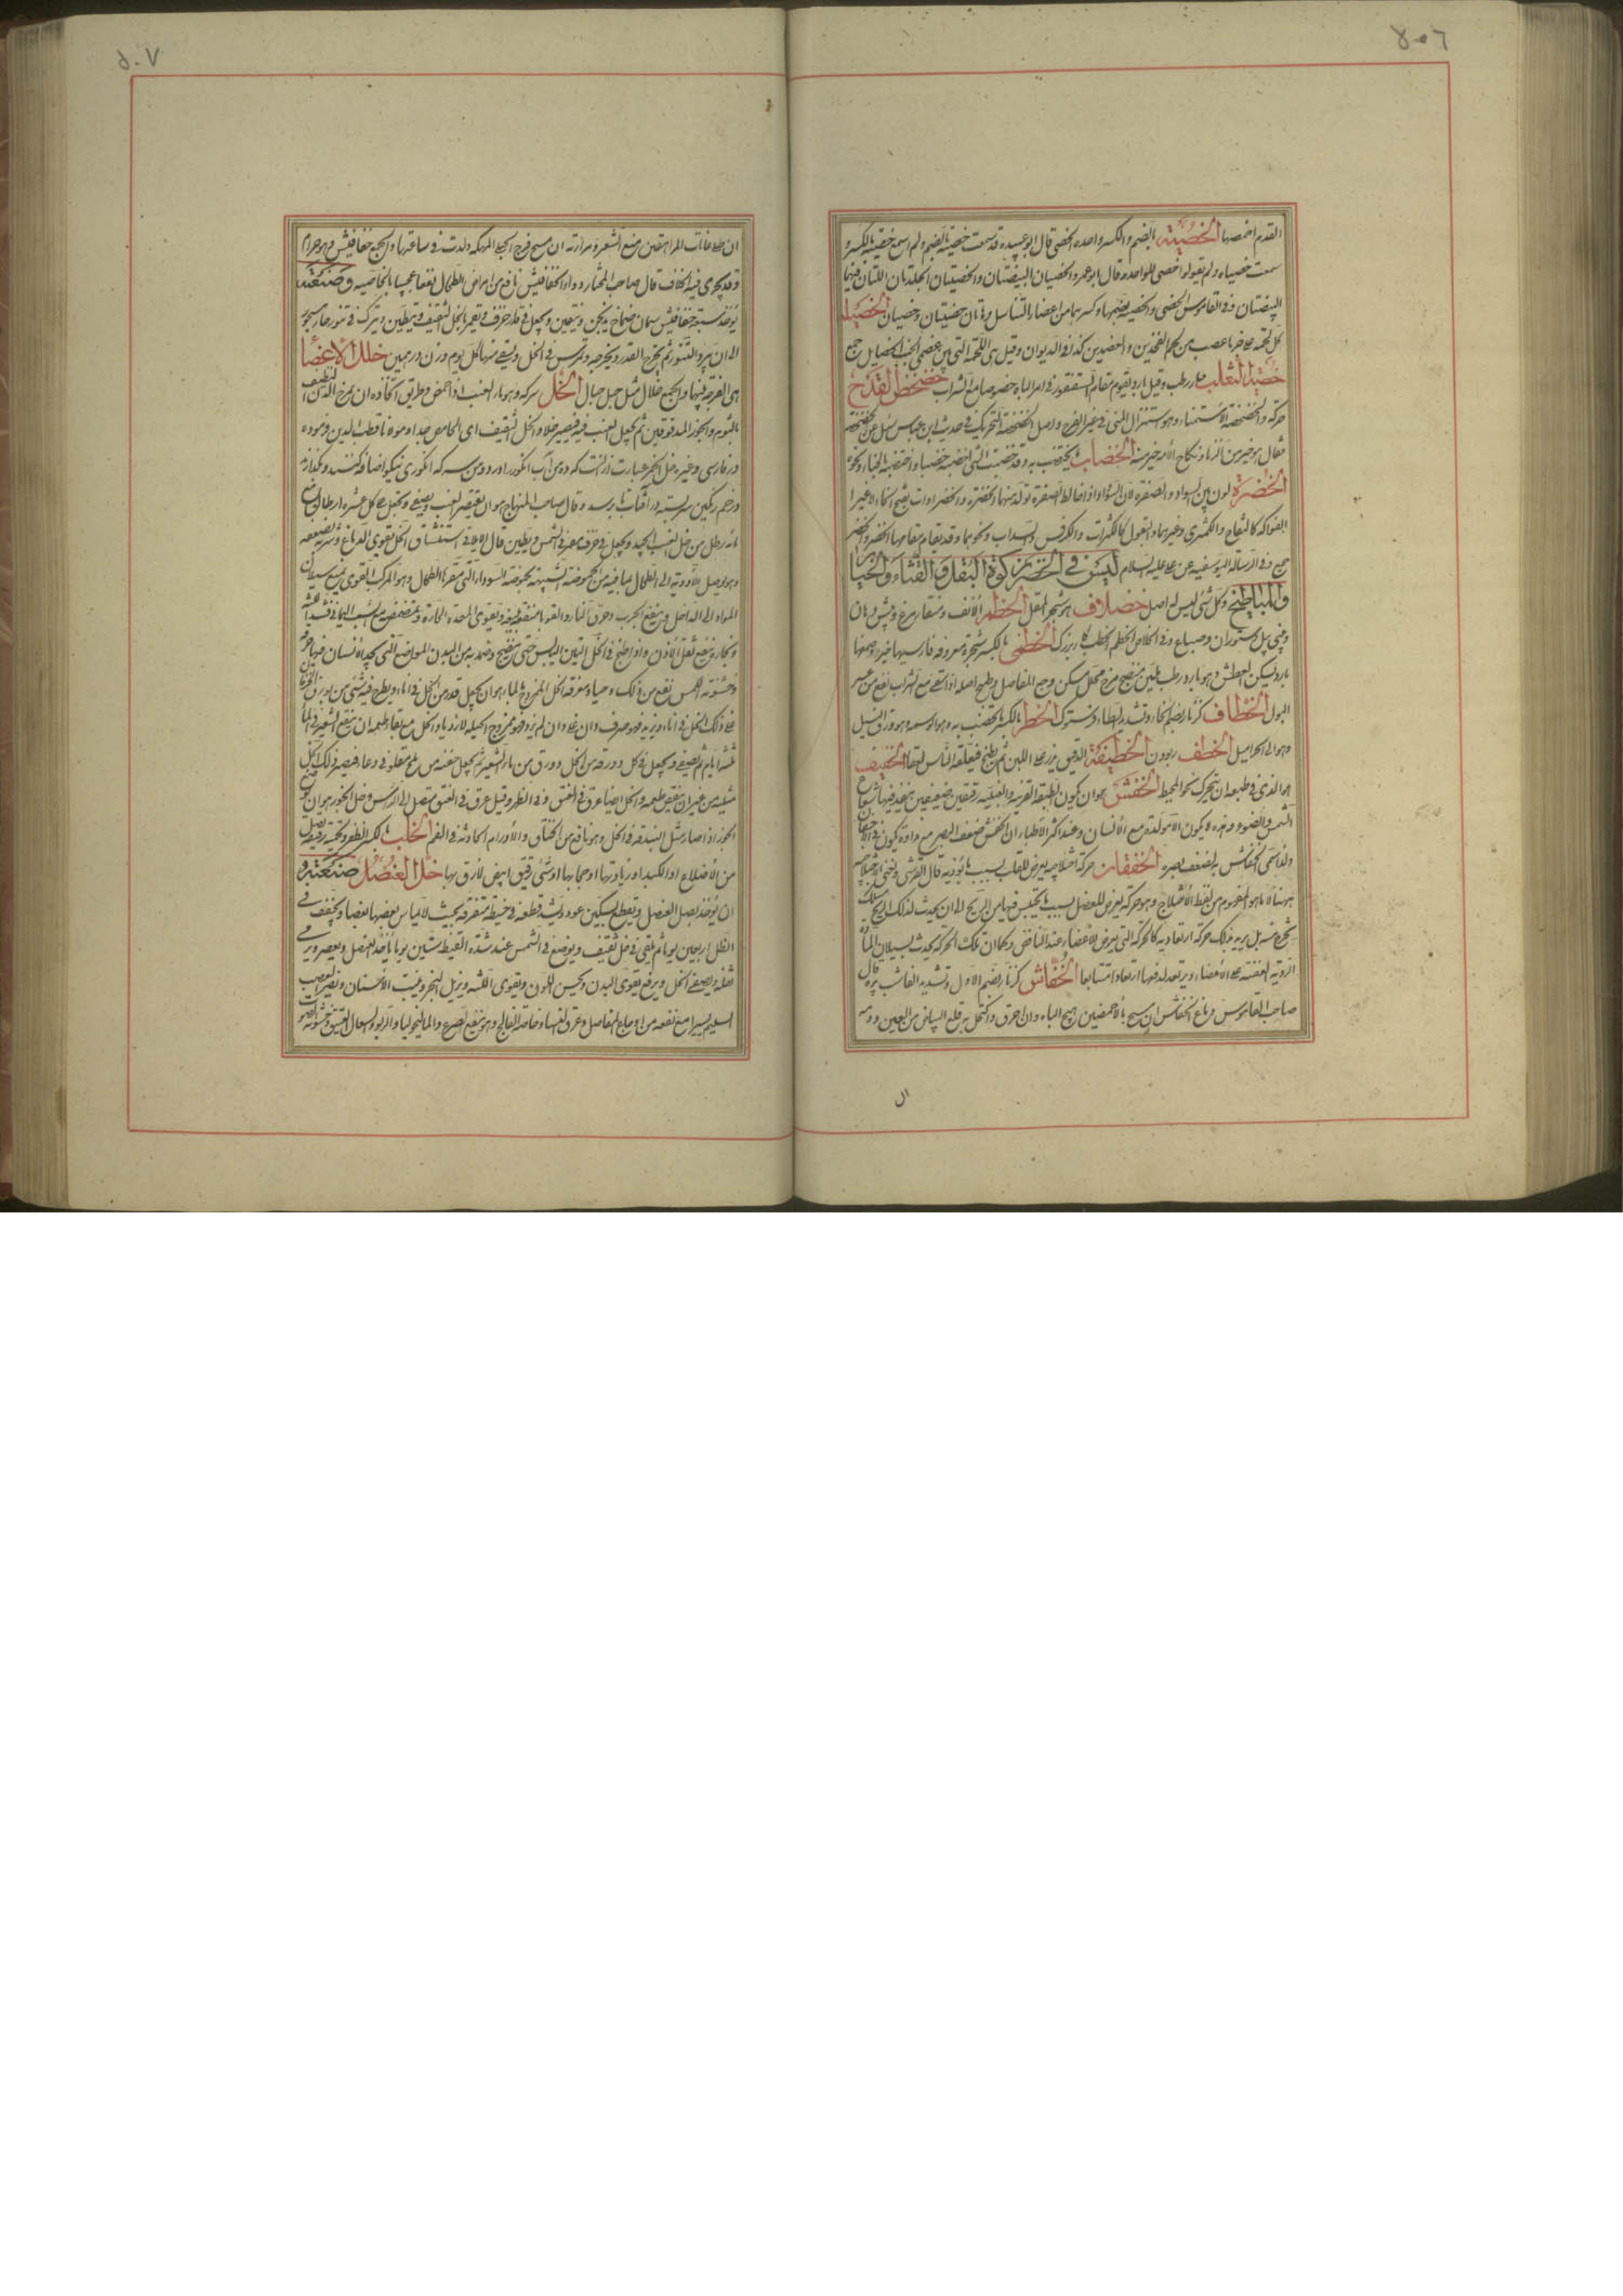 ٤٠٦
القدم اخمصها الخصية بالضم والكسر واحدة الخصى قال ابو عبيدة قد سمعت خصية بالضم ولم اسمع خصية بالكسر و
سمعت خصياه ولم يقولوا خصى للواحد وقال ابو عمرو الخصيان البيضتان والخصيتان الجلدتان اللتان فيهما
البيضتان وفى القاموس الخصى والخصية بضمهما وكسرهما من اعضاء التناسل وهاتان خصيتان وخصيان الخصيلة
كل لحمة على حيالها عصب من لحم الفخذين والعضدين كذا فى الديوان وقيل هى اللحمة التى جمع
خصية الثعلب حار رطب وقيل بارد يقوم مقام السقنقور فى امر الباه خصوصا مع الشراب خضخض القدح
حركه والخضخضة الاستمناء وهو استنزال المنى فى غير الفرج واصل الخضخضة التحريك وفى حديث ابن عباس سئل عن الخضخضة
فقال هو خير من الزنا ونكاح الامة خير منه الخضاب ما يختضب به وقد خضبت الشئ اخضبه خضبا واختضب بالحناء ونحوه
الخضرة لون بين السواد والصفرة لان السواد اذا خالط الصفرة تولد منهما الخضرة والخضراوات بفتح الخاء لا غير
الفواكه كالتفاح والكمثرى وغيرهما والبقول كالكراث والكرفس والسداب ونحوهما وقد يقام مقامها الخضر والخضر
جمع وفى الرسالة اليوسفية عن على عليه السلام ليس فى الخضر زكوة البقل والقثاء والخيار
والمباطخ وكل شئ ليس له اصل خضلاف هو شجر المقل الخطم الانف ومنقار مرغ وپيش دهان
وبينى پل وستوران وسباع وفى الخطب كار بزرگ الخطمى بالكسر شجرة معروفة فارسيها خيرو وصمغها
بارد يسكن العطش وهو بارد رطب ملين منضج مرخ محلل يسكن وجع المفاصل وطبيخ اصله اذا سقى مع الشراب نفع من عسر
البول الخطاف كزنار بضم الخاء وتشديد الطاء پرستوك الخطر بالكسر ما يختضب به وهو الوسمة وهو ورق النيل
الخطف ربودن الخطيفة الدقيق يذر على اللبن ثم يطبخ فيلعقه الناس الخفيف
هو الذى فى طبعه ان يتحرك نحو المحيط الخفش هو ان يكون الطبقة القرنية والعنبية رقيقتين ضعيفتين ينفذ فيهما شعاع
الشمس والضوء وهذه لا يكون الا مولدة مع الانسان وعند اكثر الاطباء ان الخفش ضعف البصر مع رداءة يكون فى الاجفان
ولذا سمى الخفاش به لضعف بصره الخفقان حركة اختلاجية يعرض للقلب بسبب ما يؤذيه قال القرشى
ههنا لا ما هو المفهوم من لفظ الاختلاج وهو حركة يعرض للعضل بسبب ما يحتبس فيها من الريح الى ان يحدث لذلك الريح مسلك
يخرج منه بل يريد بذلك حركة ارتعادية كالحركة التى يعرض للاعضاء عند النافض وكما ان تلك الحركة يحدث لسيلان المادة
الردية العفنة على الاعضاء ويرتعد لدفعها ارتعادا متتابعا الخفاش كزنار بضم الاول وتشديد الفاء شب پره قال
صاحب القاموس دماغ الخفاش ان مسح بالاخمصين هيج الباه وان احرق واكتحل به قلع البياض من العين ودمه
ال
٥٠٧
ان طلى عانات المراهقين منع الشعر ومرارته ان مسح فرج الحبلى المهلكة ولدت فى ساعتها والجمع خفافيش وهو حرام
وقد يجرى فيه الخلاف قال صاحب المختار دواء الخفافيش نافع من امراض الطحال نفعا عجيبا بالخاصية وصنعته
يؤخذ ستة خفافيش سمان ضخام يذبحن وينقين ويجعل فى قدر خزف وتغمر بالخل الثقيف ويطين ويترك فى تنور حار مسجور
الى ان يبرد التنور ثم يخرج القدر ويخرجه وتمرس فى الخل ويسقى منها كل يوم وزن درهمين خلل الاعضاء
هى الفرجة بينها والجمع خلال مثل جبل جبال الخل سركه وهو ماء العنب اذا حمض وطريق اتخاذه ان يمزج الدن اللطيف
بالثوم والجوز المدقوقين ثم يجعل العنب فيه فيصير خلا والخل الثقيف اى الحامض جدا ومولانا قطب الدين فرموده
در فارسى وغيره خل الخمر عبارت از آنست كه ده من آب انگور را ودو من سركه انگورى نيكو اضافه كنند وبگذارند
ودر خم رنگين سربسته در آفتاب برسد وقال صاحب المنهاج هو ان يعتصر العنب ويصفى ويجعل على كل عشرة ارطال من
مائه رطل من خل العنب الجيد ويجعل فى خزف فى الشمس ويطين قال الايلاقى استنشاق الخل يقوى الدماغ وشربه يضعفه
وهو يوصل الادوية الى الطحال لما فيه من الحموضة الشبيهة بحموضة السوداء التى مقرها الطحال وهو المركب القوى يمنع سيلان
المواد الى الداخل وينفع الجرب وحرق النار والقوباء منفعة ويقوى المعدة الحارة وتمضمض به مع الشب اليمانى
وبخاره ينفع ثقل الاذن واذا طبخ فى الخل التين اليابس حتى ينضج وضمد به من البدن المواضع التى يجد الانسان فيها حرقة
وخشونة اللمس نفع من ذلك ومعرفة الخل الممزوج بالماء هو ان يجعل قدر من الخل فى اناء ويطرح فيه شئ من بورق
على ذلك الخل فى اناء وان على وان لم يرد فهو ممزوج
ثلثة ايام ثم يصفى ويجعل فى كل دورقة من الخل دورق من ماء الشعير ثم يجعل حفنة من ملح مقلو فى وعاء فيصير ذلك الخل
مثله من غير ان ينقص طعمه والخل ايضا عرق فى العنق وفى الظهر وقيل عرق فى العنق متصل الى الرأس وخل الخمور هو ان يوضع
الجوز اذا صار مثل البندقة فى الخل وهو نافع من الخناق والاورام الحادثة فى الفم الخلب بالكسر الظفر ولحمة رقيقة يصل
من الاضلاع او الكبد او زيادتها او حجابها او شئ رقيق ابيض لازق بها خل العنصل صنعته و
ان يؤخذ بصل العنصل ويقطع بسكين عود ويشد قطعه فى خيط متفرقة بحيث لا يماس بعضها بعضا ويجفف فى
الظل اربعين يوما ثم يلقى فى خل ثقيف ويوضع فى الشمس عند شدة القيظ ستين يوما يؤخذ العنصل ويعصر ويرمى
ثفله ويصفى الخل ويرفع يقوى البدن ويحسن اللون ويقوى اللثة ويزيل البخر ويثبت الاسنان
السليم يسيرا مع نفعه من اوجاع المفاصل وعرق النساء وخاصة الفالج وهو ينفع الصرع والماليخوليا والربو والسعال العتيق وخشونة الصوت